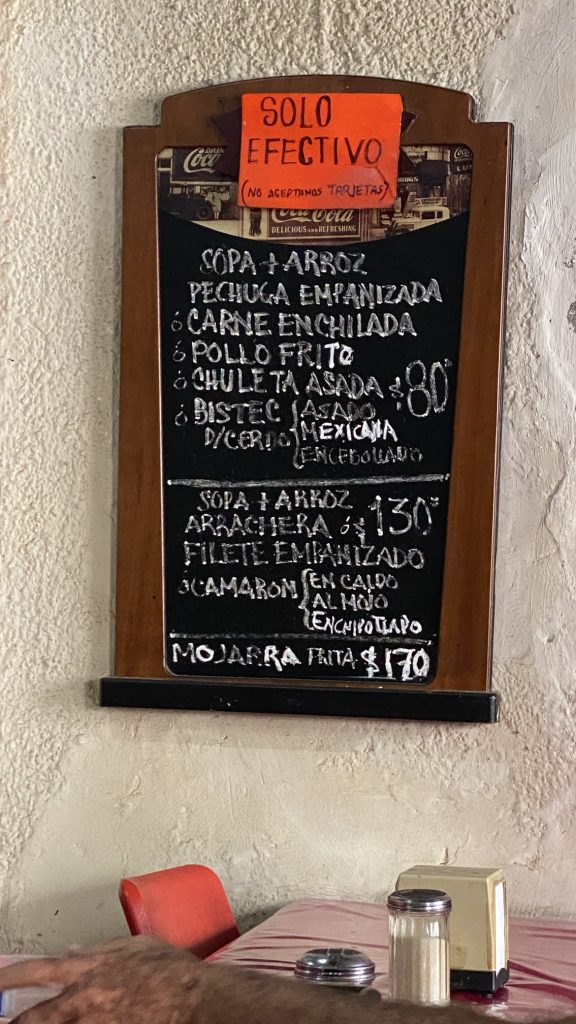 SOLO
EFECTIVO
(NO ACEPTAMOS TARJETAS)
DRINK
Coca-Cola
Coca
DRUGS
LUN
Coca-Cola
DELICIOUS AND REFRESHING
SOPA + ARROZ
PECHUGA EMPANIZADA
ó CARNE ENCHILADA
ó POLLO FRITO
ó CHULETA ASADA $80
ó BISTEC { ASADO
D/CERDO MEXICANA
ENCEBOLLADO
SOPA + ARROZ
ARRACHERA ó $130
FILETE EMPANIZADO
ó CAMARON { EN CALDO
AL MOJO
ENCHIPOTLADO
MOJARRA FRITA $170